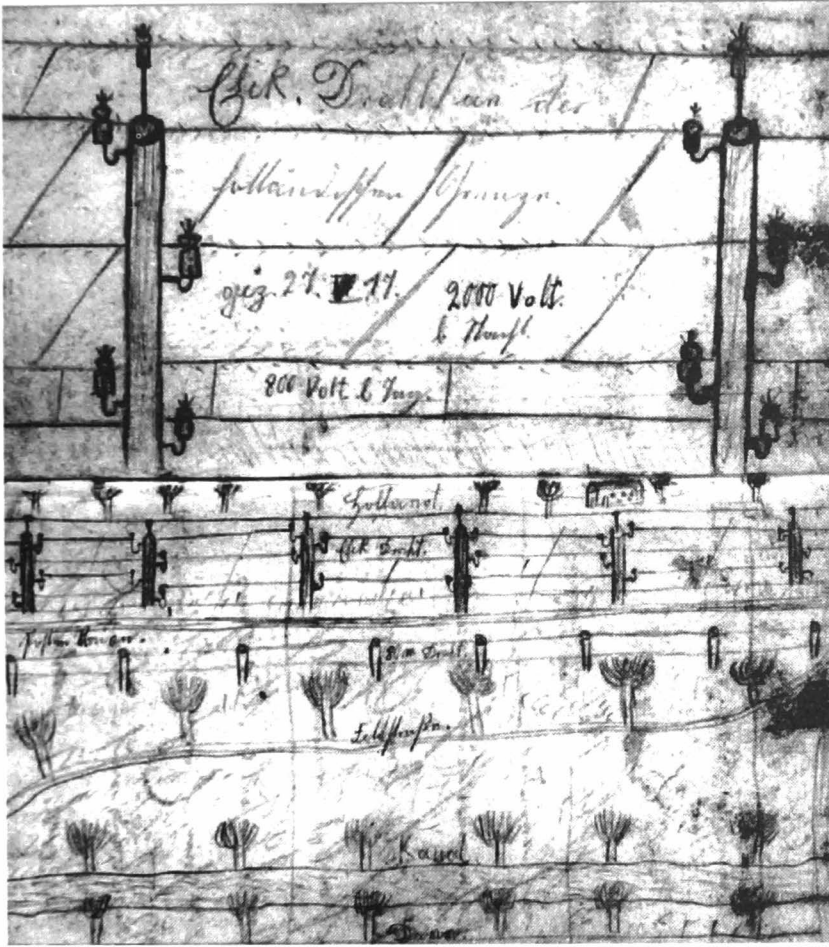 Elek. Draht an der
holländischen Grenze.
gez. 27. IV 17. 2000 Volt.
b. Nacht.
800 Volt b. Tag.
Holland.
Elek Draht.
Draht
Feldstraße.
Kanal